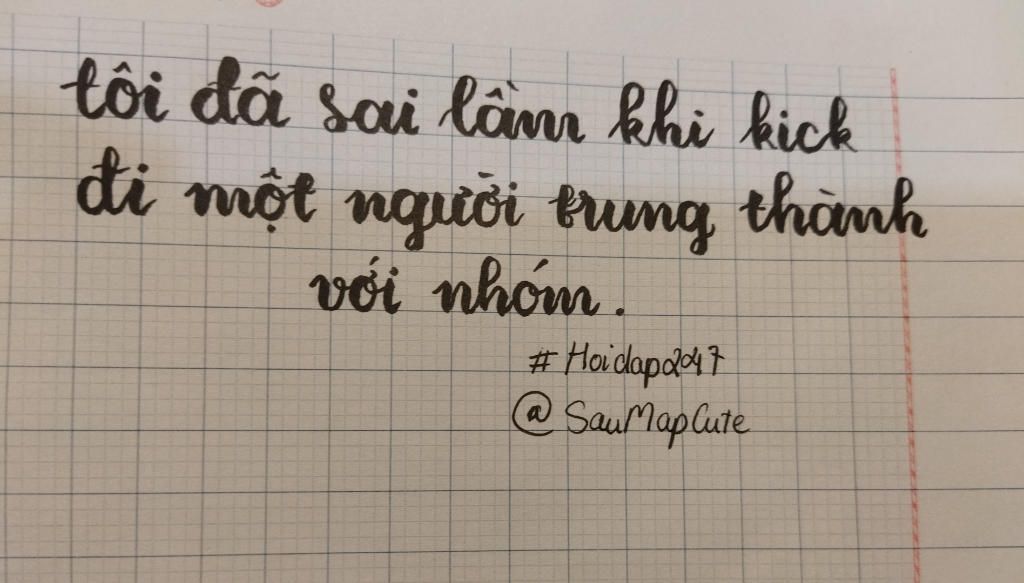 tôi đã sai lầm khi kick
đi một người trung thành
với nhóm.
# Hoidap247
@ SauMapCute